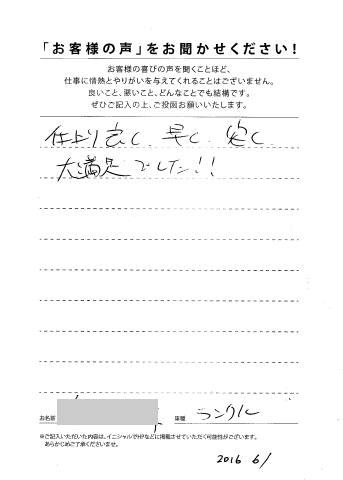 「お客様の声」をお聞かせください！
お客様の喜びの声を聞くことほど、
仕事に情熱とやりがいを与えてくれることはございません。
良いこと、悪いこと、どんなことでも結構です。
ぜひご記入の上、ご投函お願いいたします。
仕上り良く、早く、安く、
大満足でした!!
お名前
車種 ランクル
※ご記入いただいた内容は、イニシャルでHPなどに掲載させていただく可能性がございます。
あらかじめご了承くださいませ。
2016 6/